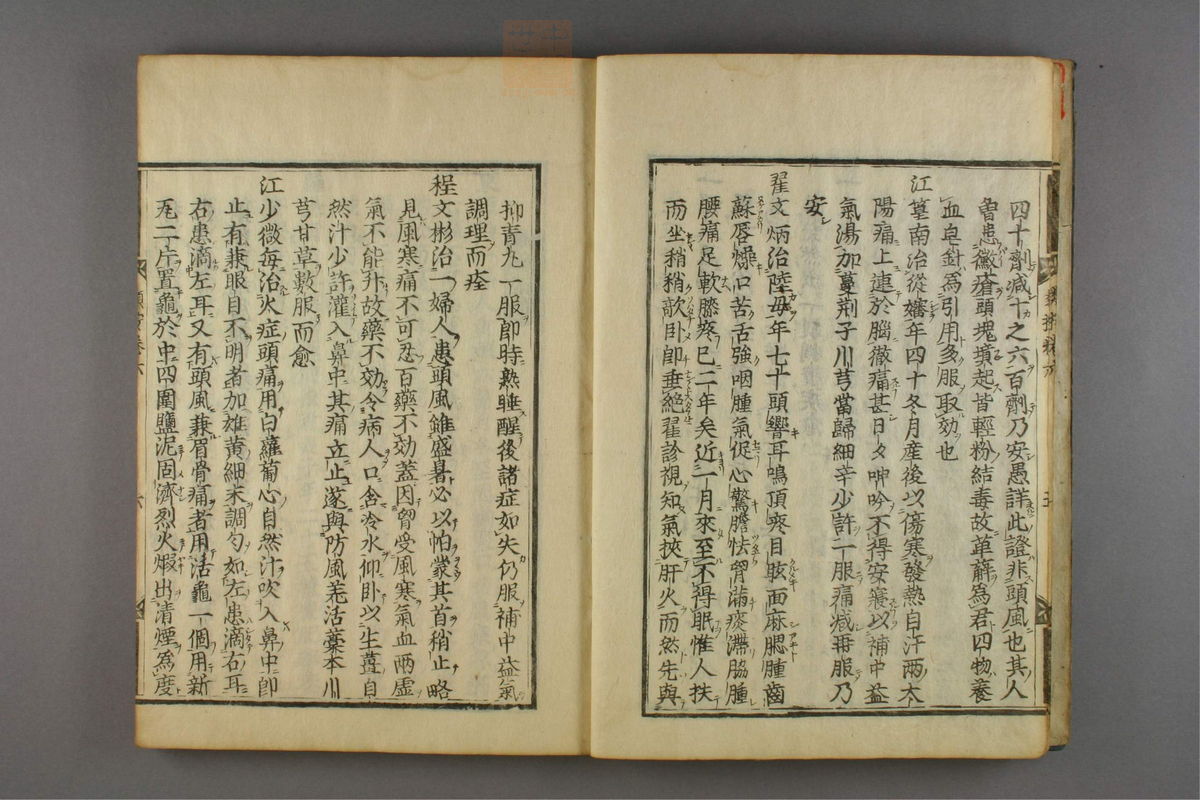 四十劑減十之六百劑乃安愚詳此證非頭風也其人
曾患黴瘡頭塊墳起皆輕粉結毒故萆薢為君四物養
血皂針為引用多服取効也
江篁南治從嬸年四十冬月産後以傷寒發熱自汗兩太
陽痛上連於腦徹痛甚日夕呻吟不得安寢以補中益
氣湯加蔓荊子川芎當歸細辛少許一服痛減再服乃
安
翟文炳治陸母年七十頭響耳鳴頂疼目眩面麻腮腫齒
蘇唇燥口苦舌強咽腫氣促心驚膽怯胷滿痰滯脇腫
腰痛足軟膝疼已二年矣近一月來至不得眠惟人扶
而坐稍稍歌卧即垂絶翟診視知氣挾肝火而然先與
抑青丸一服即時熟睡醒後諸症如失仍服補中益氣
調理而痊
程文彬治一婦人患頭風雖盛暑必以帕蒙其首稍止略
見風寒痛不可忍百藥不効蓋因胷受風寒氣血兩虛
氣不能升故藥不効令病人口含冷水仰卧以生薑自
然汁少許灌入鼻中其痛立止遂與防風羌活藁本川
芎甘草數服而愈
江少微每治火症頭痛用白蘿蔔心自然汁吹入鼻中即
止有兼眼目不明者加雄黄細末調勻如左患滴右耳
右患滴左耳又有頭風兼眉骨痛者用活龜一個用新
瓦二片置龜於中四圍鹽泥固濟烈火煅出清煙為度